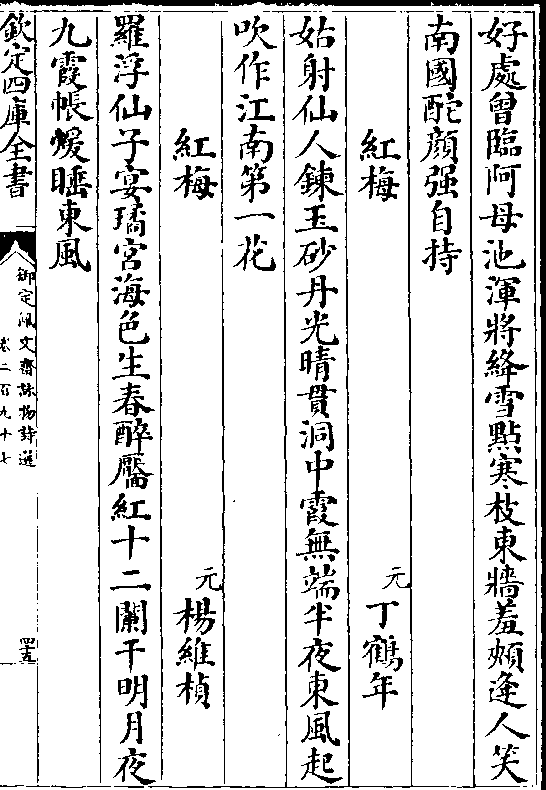 好處曾臨阿母池渾將絳雪點寒枝東牆羞頰逢人笑
南國酡顔强自持
紅梅
元
丁鶴年
姑射仙人鍊玉砂丹光晴貫洞中霞無端半夜東風起
吹作江南第一花
紅梅
元
楊維楨
羅浮仙子宴璚宮海色生春醉靨紅十二闌干明月夜
九霞帳煖睡東風
欽定四庫全書
御定佩文齋詠物詩選
卷二百九十七
四五